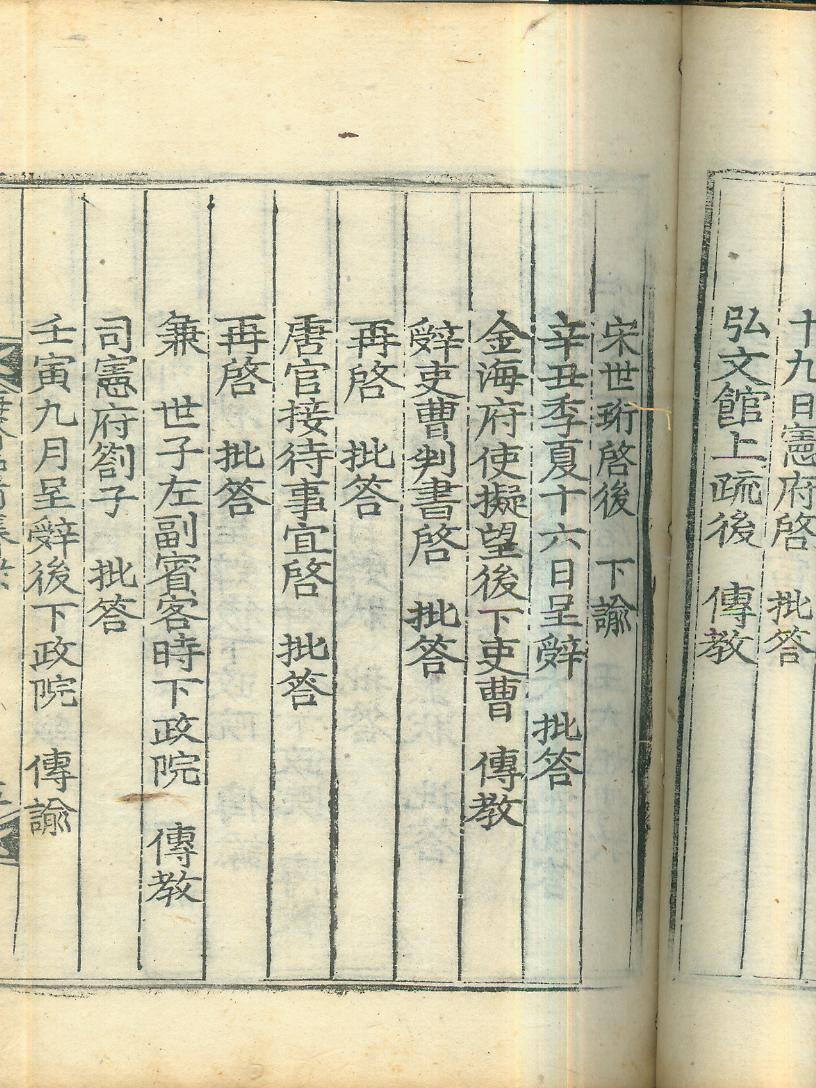 十九日憲府啓　批答
弘文館上疏後　傳教
宋世珩啓後　下諭
辛丑季夏十六日呈辭　批答
金海府使擬望後下吏曹　傳教
辭吏曹判書啓　批答
再啓　批答
唐官接待事宜啓　批答
再啓　批答
兼　世子左副賓客時下政院　傳教
司憲府劄子　批答
壬寅九月呈辭後下政院　傳諭